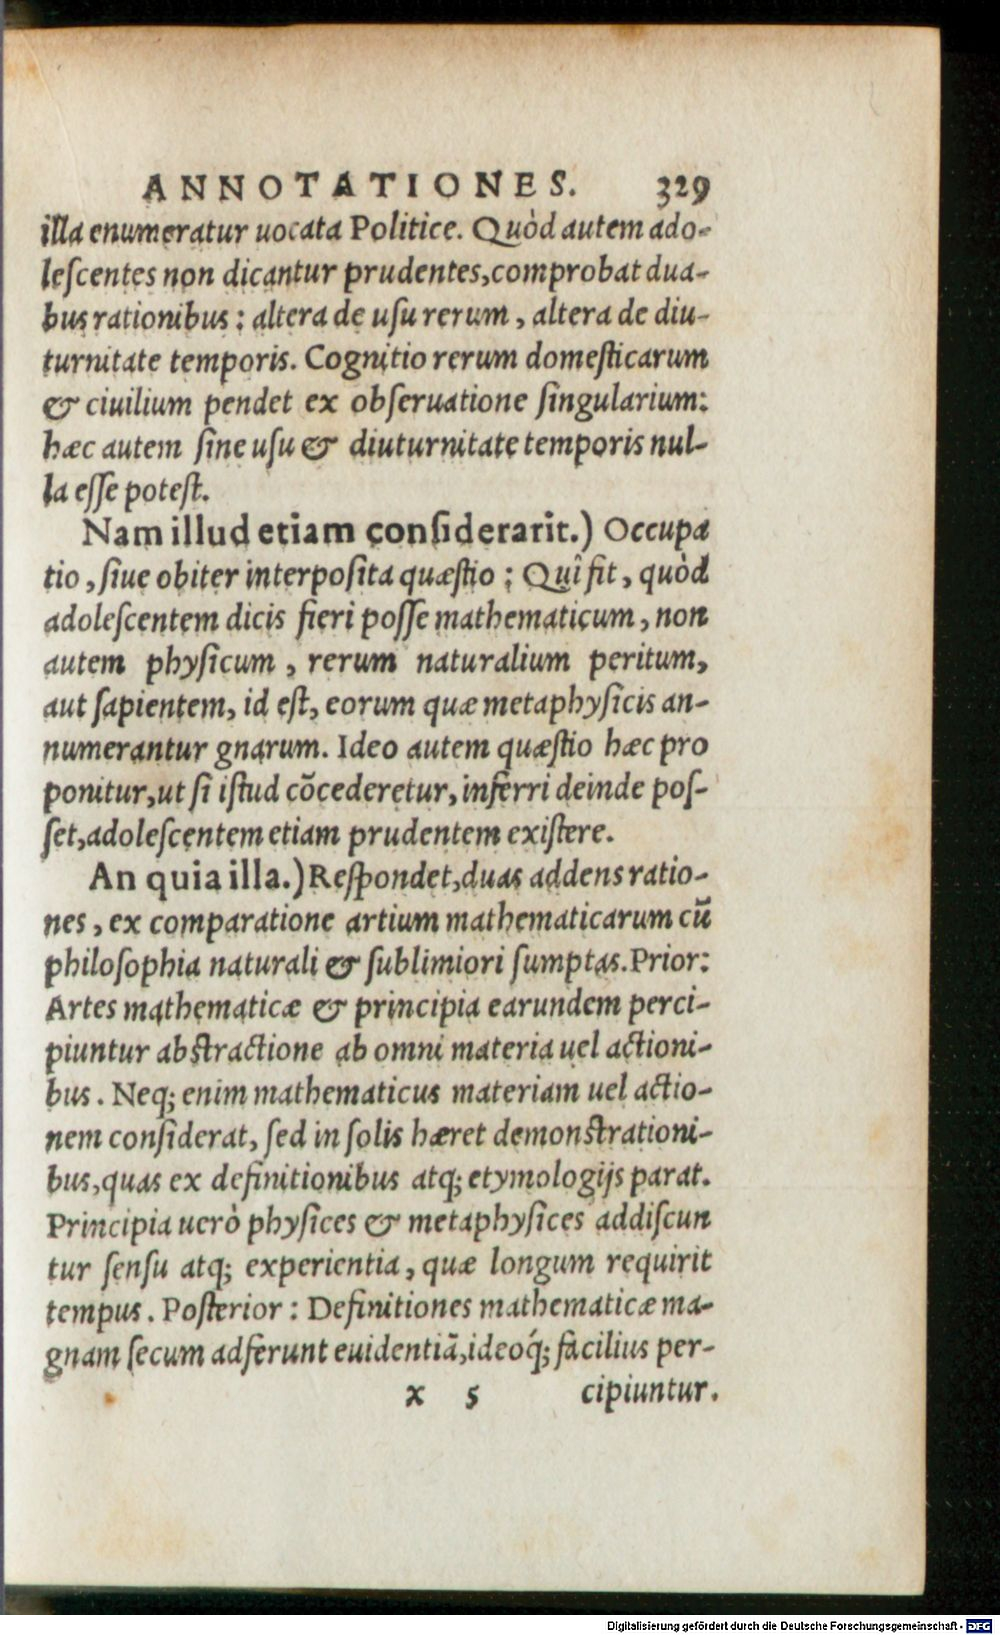 ANNOTATIONES. 329
illa enumeratur uocata Politice. Quòd autem ado-
leſcentes non dicantur prudentes,comprobat dua-
bus rationibus: altera de uſu rerum, altera de diu-
turnitate temporis. Cognitio rerum domeſticarum
& ciuilium pendet ex obſeruatione ſingularium:
hæc autem ſine uſu & diuturnitate temporis nul-
la eſſe poteſt.
Nam illud etiam conſiderarit.) Occupa
tio, ſiue obiter interpoſita quæſtio: Quî fit, quòd
adoleſcentem dicis fieri poſſe mathematicum, non
autem phyſicum, rerum naturalium peritum,
aut ſapientem, id eſt, eorum quæ metaphyſicis an-
numerantur gnarum. Ideo autem quæſtio hæc pro
ponitur,ut ſi iſtud cõcederetur, inferri deinde poſ-
ſet,adoleſcentem etiam prudentem exiſtere.
An quia illa.) Reſpondet,duas addens ratio-
nes, ex comparatione artium mathematicarum cũ
philoſophia naturali & ſublimiori ſumptas. Prior:
Artes mathematicæ & principia earundem perci-
piuntur abſtractione ab omni materia uel actioni-
bus. Neq; enim mathematicus materiam uel actio-
nem conſiderat, ſed in ſolis hæret demonſtrationi-
bus,quas ex definitionibus atq; etymologijs parat.
Principia uerò phyſices & metaphyſices addiſcun
tur ſenſu atq; experientia, quæ longum requirit
tempus. Poſterior: Definitiones mathematicæ ma-
gnam ſecum adferunt euidentiã,ideoq́; facilius per-
x 5 cipiuntur.
Digitalisierung gefördert durch die Deutsche Forschungsgemeinschaft - DFG